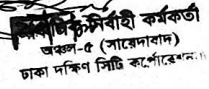 নির্বাহী কর্মকর্তা
অঞ্চল-৫ (সায়েদাবাদ)
ঢাকা দক্ষিণ সিটি কর্পোরেশন।